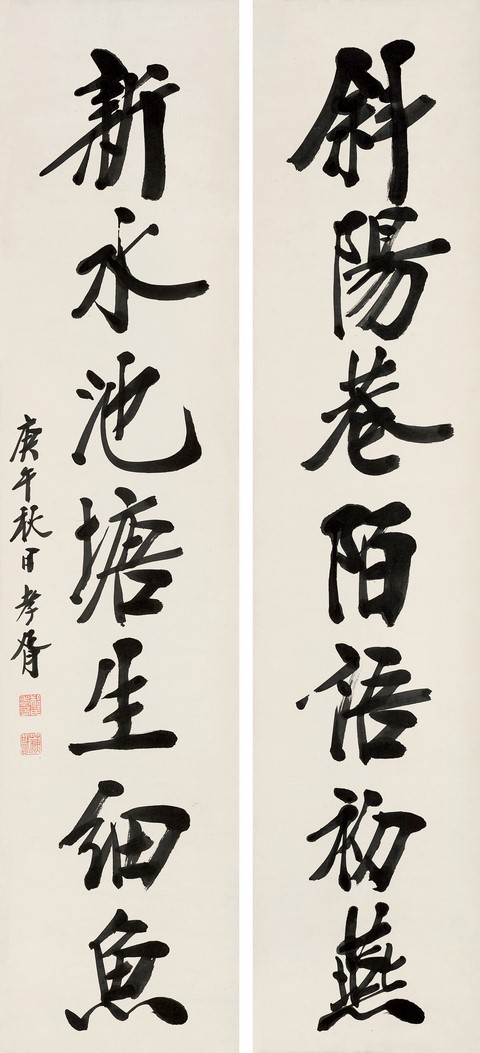 斜陽巷陌語初燕
新水池塘生細魚
庚午秋日 孝胥